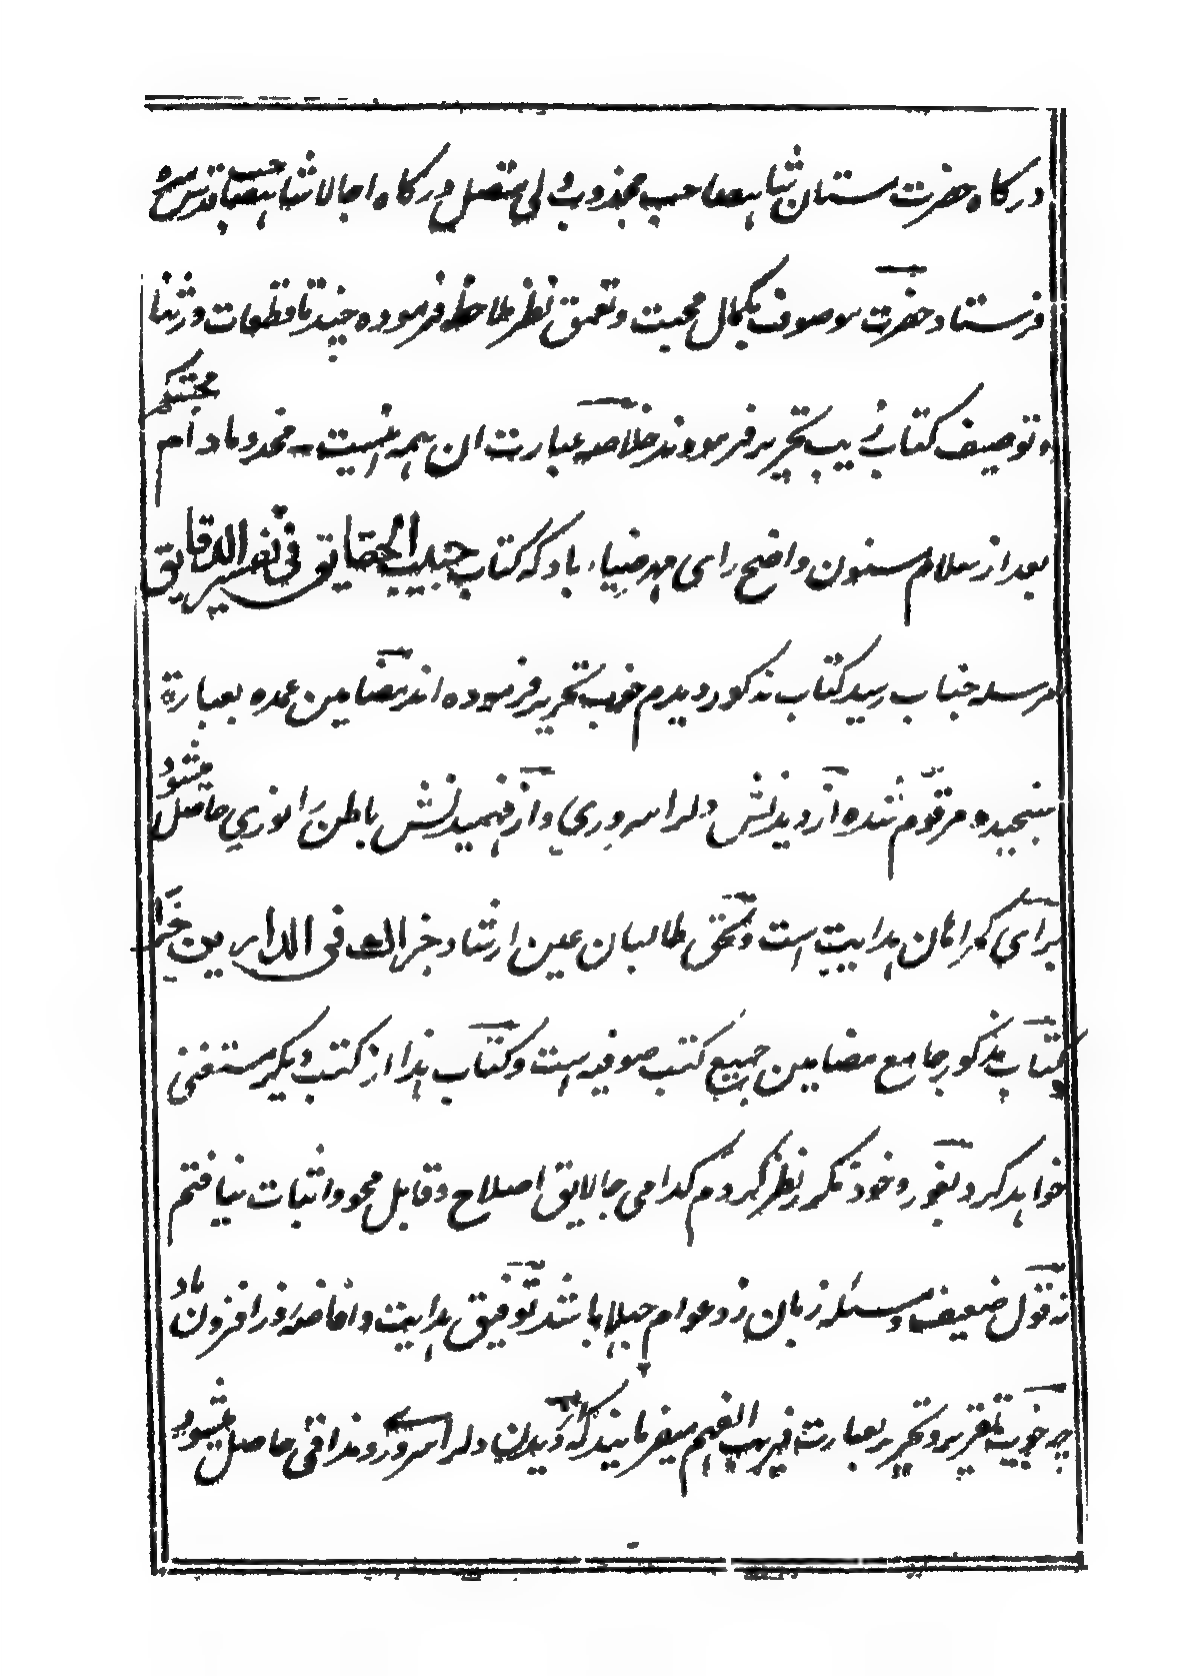 درگاه حضرت مستان شاہصاحب مجذوب ولی متصل درگاه اجالا شاہصاحب قدس سره
فرستاد حضرت موصوف بکمال محبت و تعمق نظر ملاحظہ فرموده چند تا قطعات در ثنا
و توصیف کتاب بتحریر فرمودند خلاصہ عبارت ان ہمہ اینست مخدوما دام مجدکم
بعد از سلام مسنون واضح رای مہر ضیاء باد کہ کتاب حبیب الحقایق فی تفسیر الدقایق
مرسلہ جناب رسید کتاب مذکور دیدم خوب تحریر فرموده اند مضامین عمده بعبارة
سنجیده مرقوم شده از دیدنش دلرا سروری و از فہمیدنش باطن را نوری حاصل میشود
برای گمراہان ہدایت است و بحق طالبان عین ارشاد جزاک الله فی الدارین خیرا
کتاب مذکور جامع مضامین جمیع کتب صوفیہ است و کتاب ہذا از کتب دیگر مستغنی
خواہد کرد بغور و خوذ مکرر نظر کردم کدامی جا لایق اصلاح و قابل محو و اثبات نیافتم
نہ قول ضعیف و مسئلہ زبان زد عوام جہلا باشد توفیق ہدایت و افاضہ روز افزون باد
چہ خوب تقریر و تحریر بعبارت قریب الفہم میفرمایند کہ از دیدن دلرا سرور و مذاقی حاصل میشود